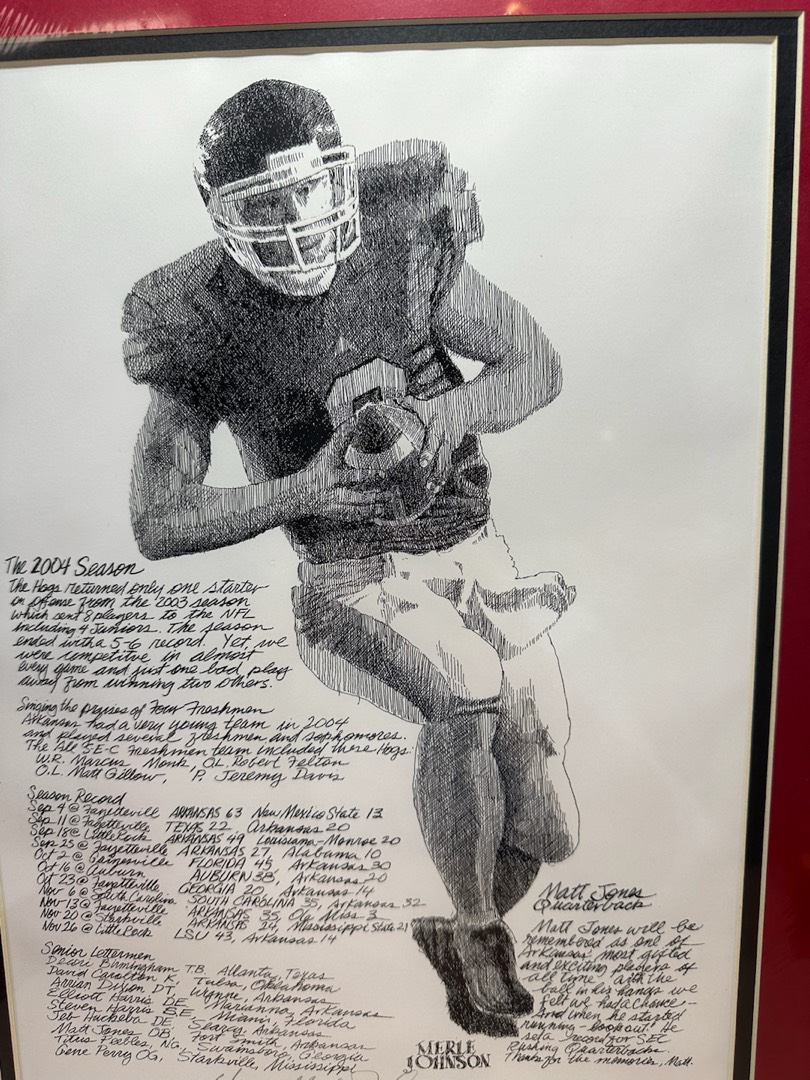 The 2004 Season
The Hogs returned only one starter
on offense from the 2003 season
which sent 8 players to the NFL
including 4 Juniors. The season
ended with a 5-6 record. Yet, we
were competitive in almost
every game and just one bad play
away from winning two others.
Singing the praises of Four Freshmen
Arkansas had a very young team in 2004
and played several freshmen and sophomores.
The All S-E-C Freshmen team included these Hogs:
W.R. Marcus Monk, O.L. Robert Felton
O.L. Matt Gillow, P. Jeremy Davis
Season Record
Sep 4 @ Fayetteville ARKANSAS 63 New Mexico State 13
Sep 11 @ Fayetteville TEXAS 22 Arkansas 20
Sep 18 @ Little Rock ARKANSAS 49 Louisiana-Monroe 20
Sep 25 @ Fayetteville ARKANSAS 27, Alabama 10
Oct 2 @ Gainesville FLORIDA 45, Arkansas 30
Oct 16 @ Auburn AUBURN 38, Arkansas 20
Oct 23 @ Fayetteville GEORGIA 20, Arkansas 14
Nov 6 @ South Carolina SOUTH CAROLINA 35, Arkansas 32
Nov 13 @ Fayetteville ARKANSAS 35, Ole Miss 3
Nov 20 @ Starkville ARKANSAS 24, Mississippi State 21
Nov 26 @ Little Rock LSU 43, Arkansas 14
Senior Lettermen
Birmingham T.B. Atlanta, Texas
David Carolton K, Tulsa, Oklahoma
Arrian Dixon DT, Wynne, Arkansas
Elliott Harris DE Marianna, Arkansas
Steven Harris Miami, Florida
Jeb Huckeba DE Searcy, Arkansas
Matt Jones QB, Fort Smith, Arkansas
Titus Peebles, NG, Swainsboro, Georgia
Gene Perry OG, Starkville, Mississippi
MERLE
JOHNSON
Matt Jones
Quarterback
Matt Jones will be
remembered as one of
Arkansas' most gifted
and exciting players of
all time. With the
ball in his hands we
felt we had a chance --
And when he started
running - look out! He
set a record for SEC
Rushing Quarterbacks.
Thanks for the memories, Matt.